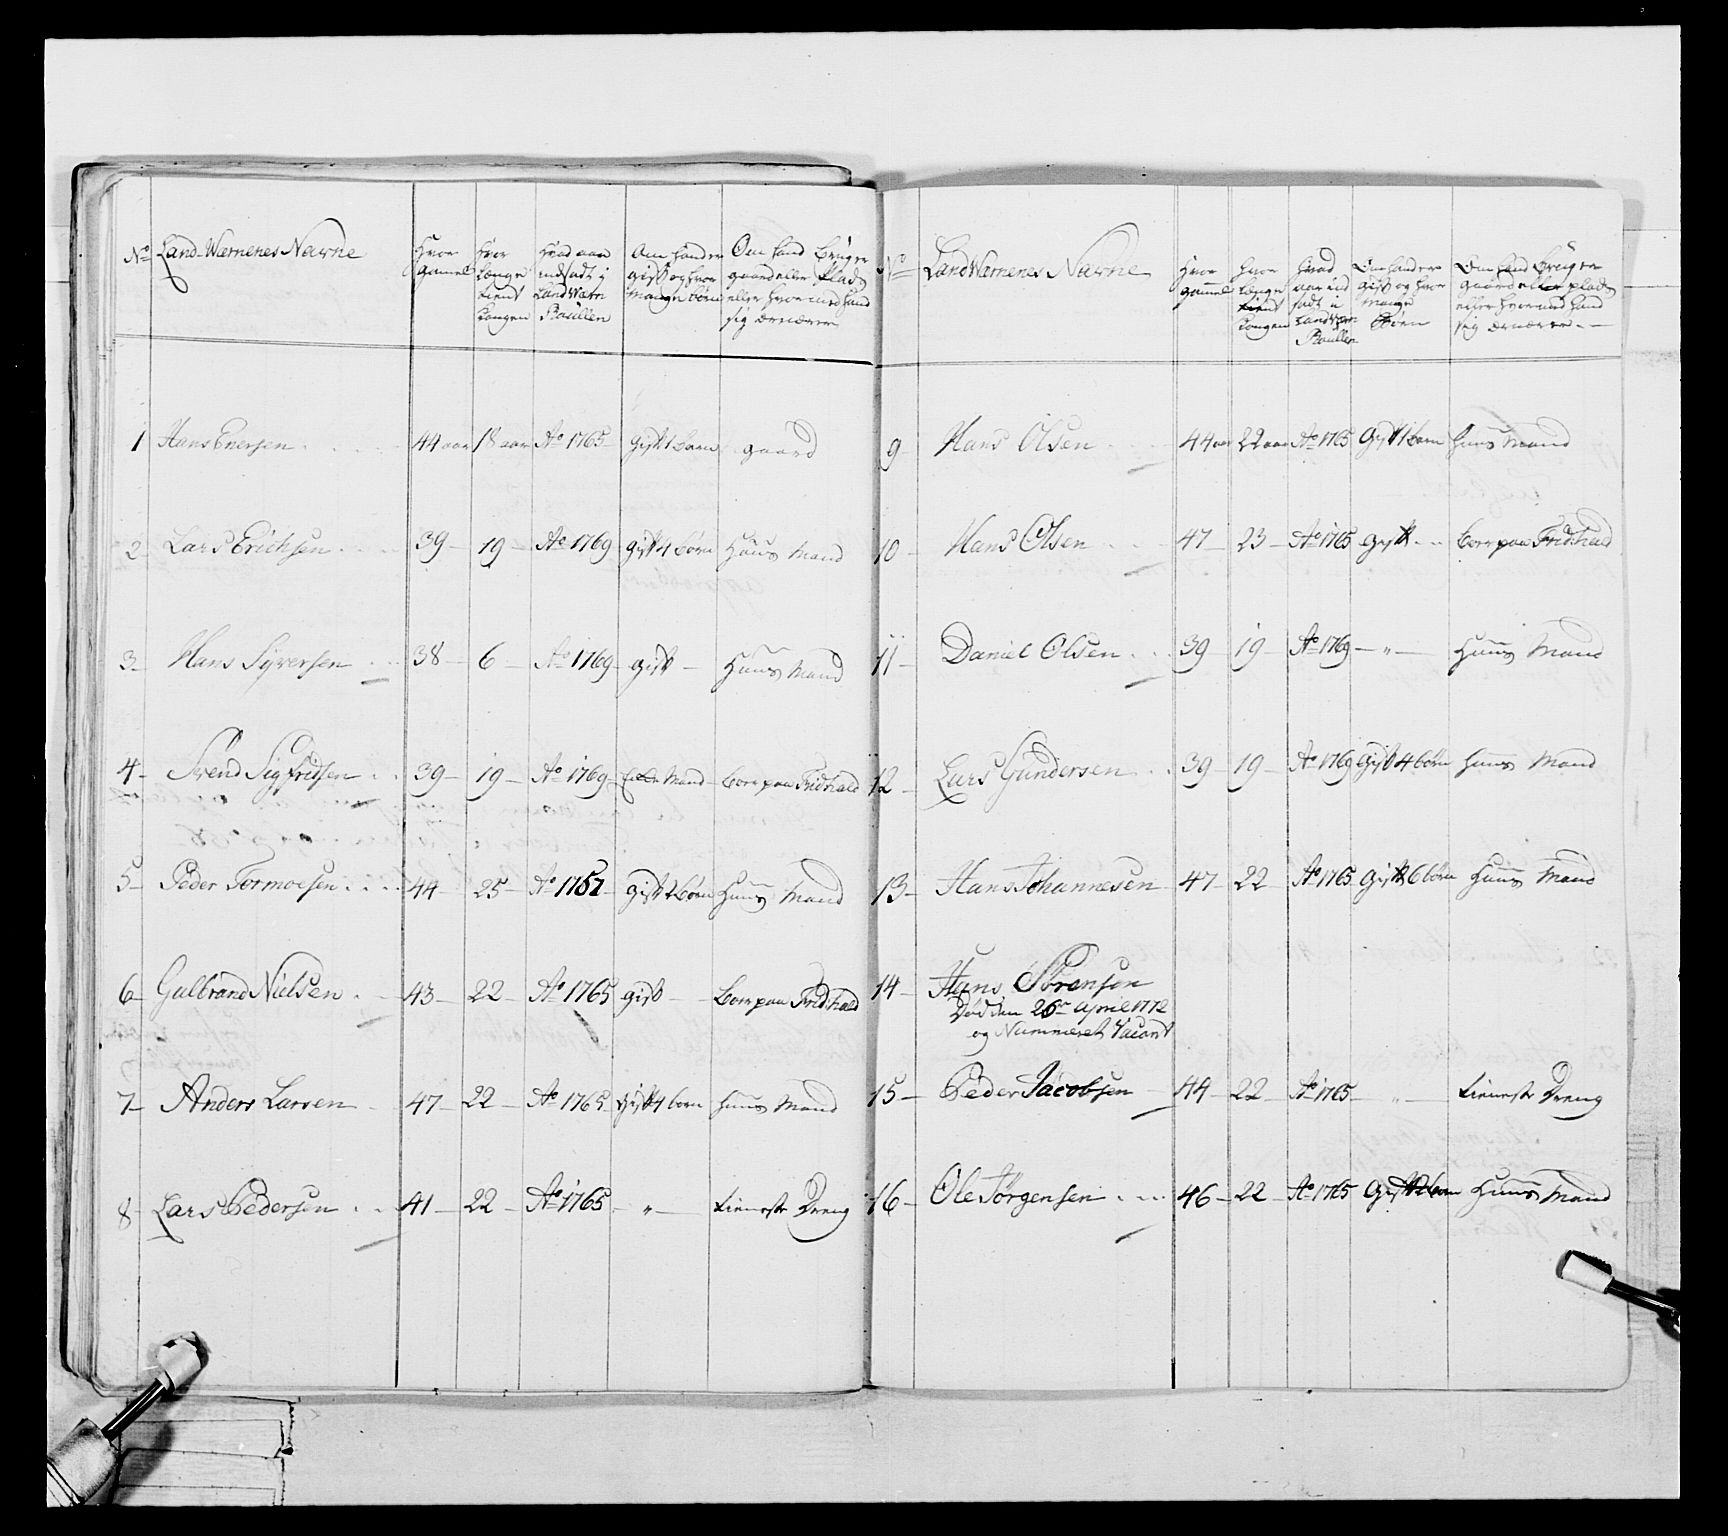 No Land-Wærnenes Navne | Hvor gamel | Hvor længe tient Kongen | Hvad aar indsadt i LandVærn Roullen | Om hand er gift og hvor mange børn | Om hand bruger gaard eller plads eller hvormed hand sig ernærer
1 Hans Enersen 44 aar 18 aar Ao 1765 gift 1 barn gaard
2 Lars Erichsen 39 19 Ao 1769 gift 4 børn Huus Mand
3 Hans Syversen 38 6 Ao 1769 gift Huus Mand
4 Svend Sigfridsen 39 19 Ao 1769 Mand boer paa Fridhald
5 Peder Tormoesen 44 25 Ao 1757 gift 2 børn Huus Mand
6 Gulbrand Nielsen 43 22 Ao 1765 gift boer paa Fridhald
7 Anders Larsen 47 22 Ao 1765 gift 4 born Huus Mand
8 Lars Pedersen 41 22 Ao 1765 " tieneste Dreng
No Land Wærnenes Navne | Hvor gammel | hvor længe tient Kongen | hvad aar ind sadt i LandVærn Roullen | Om hand er gift og hvor mange Børn | Om hand bruger gaard eller plads eller hvormed hand sig ernærer
9 Hans Olsen 44 aar 22 aar Ao 1765 Gift 1 barn huus Mand
10 Hans Olsen 47 23 Ao 1765 gift boer paa Fridhald
11 Daniel Olsen 39 19 Ao 1769 " Huus Mand
12 Lars Gundersen 39 19 Ao 1769 Gift 4 børn huus Mand
13 Hans Johannesen 47 22 Ao 1765 gift 6 børn Huus Mand
14 Hans Sørensen
Død den 26de April 1772
og Nummeret Vacant
15 Peder Jacobsen 44 22 Ao 1765 " tieneste Dreng
16 Ole Jørgensen 46 22 Ao 1765 Gift 2 born Huus Mand